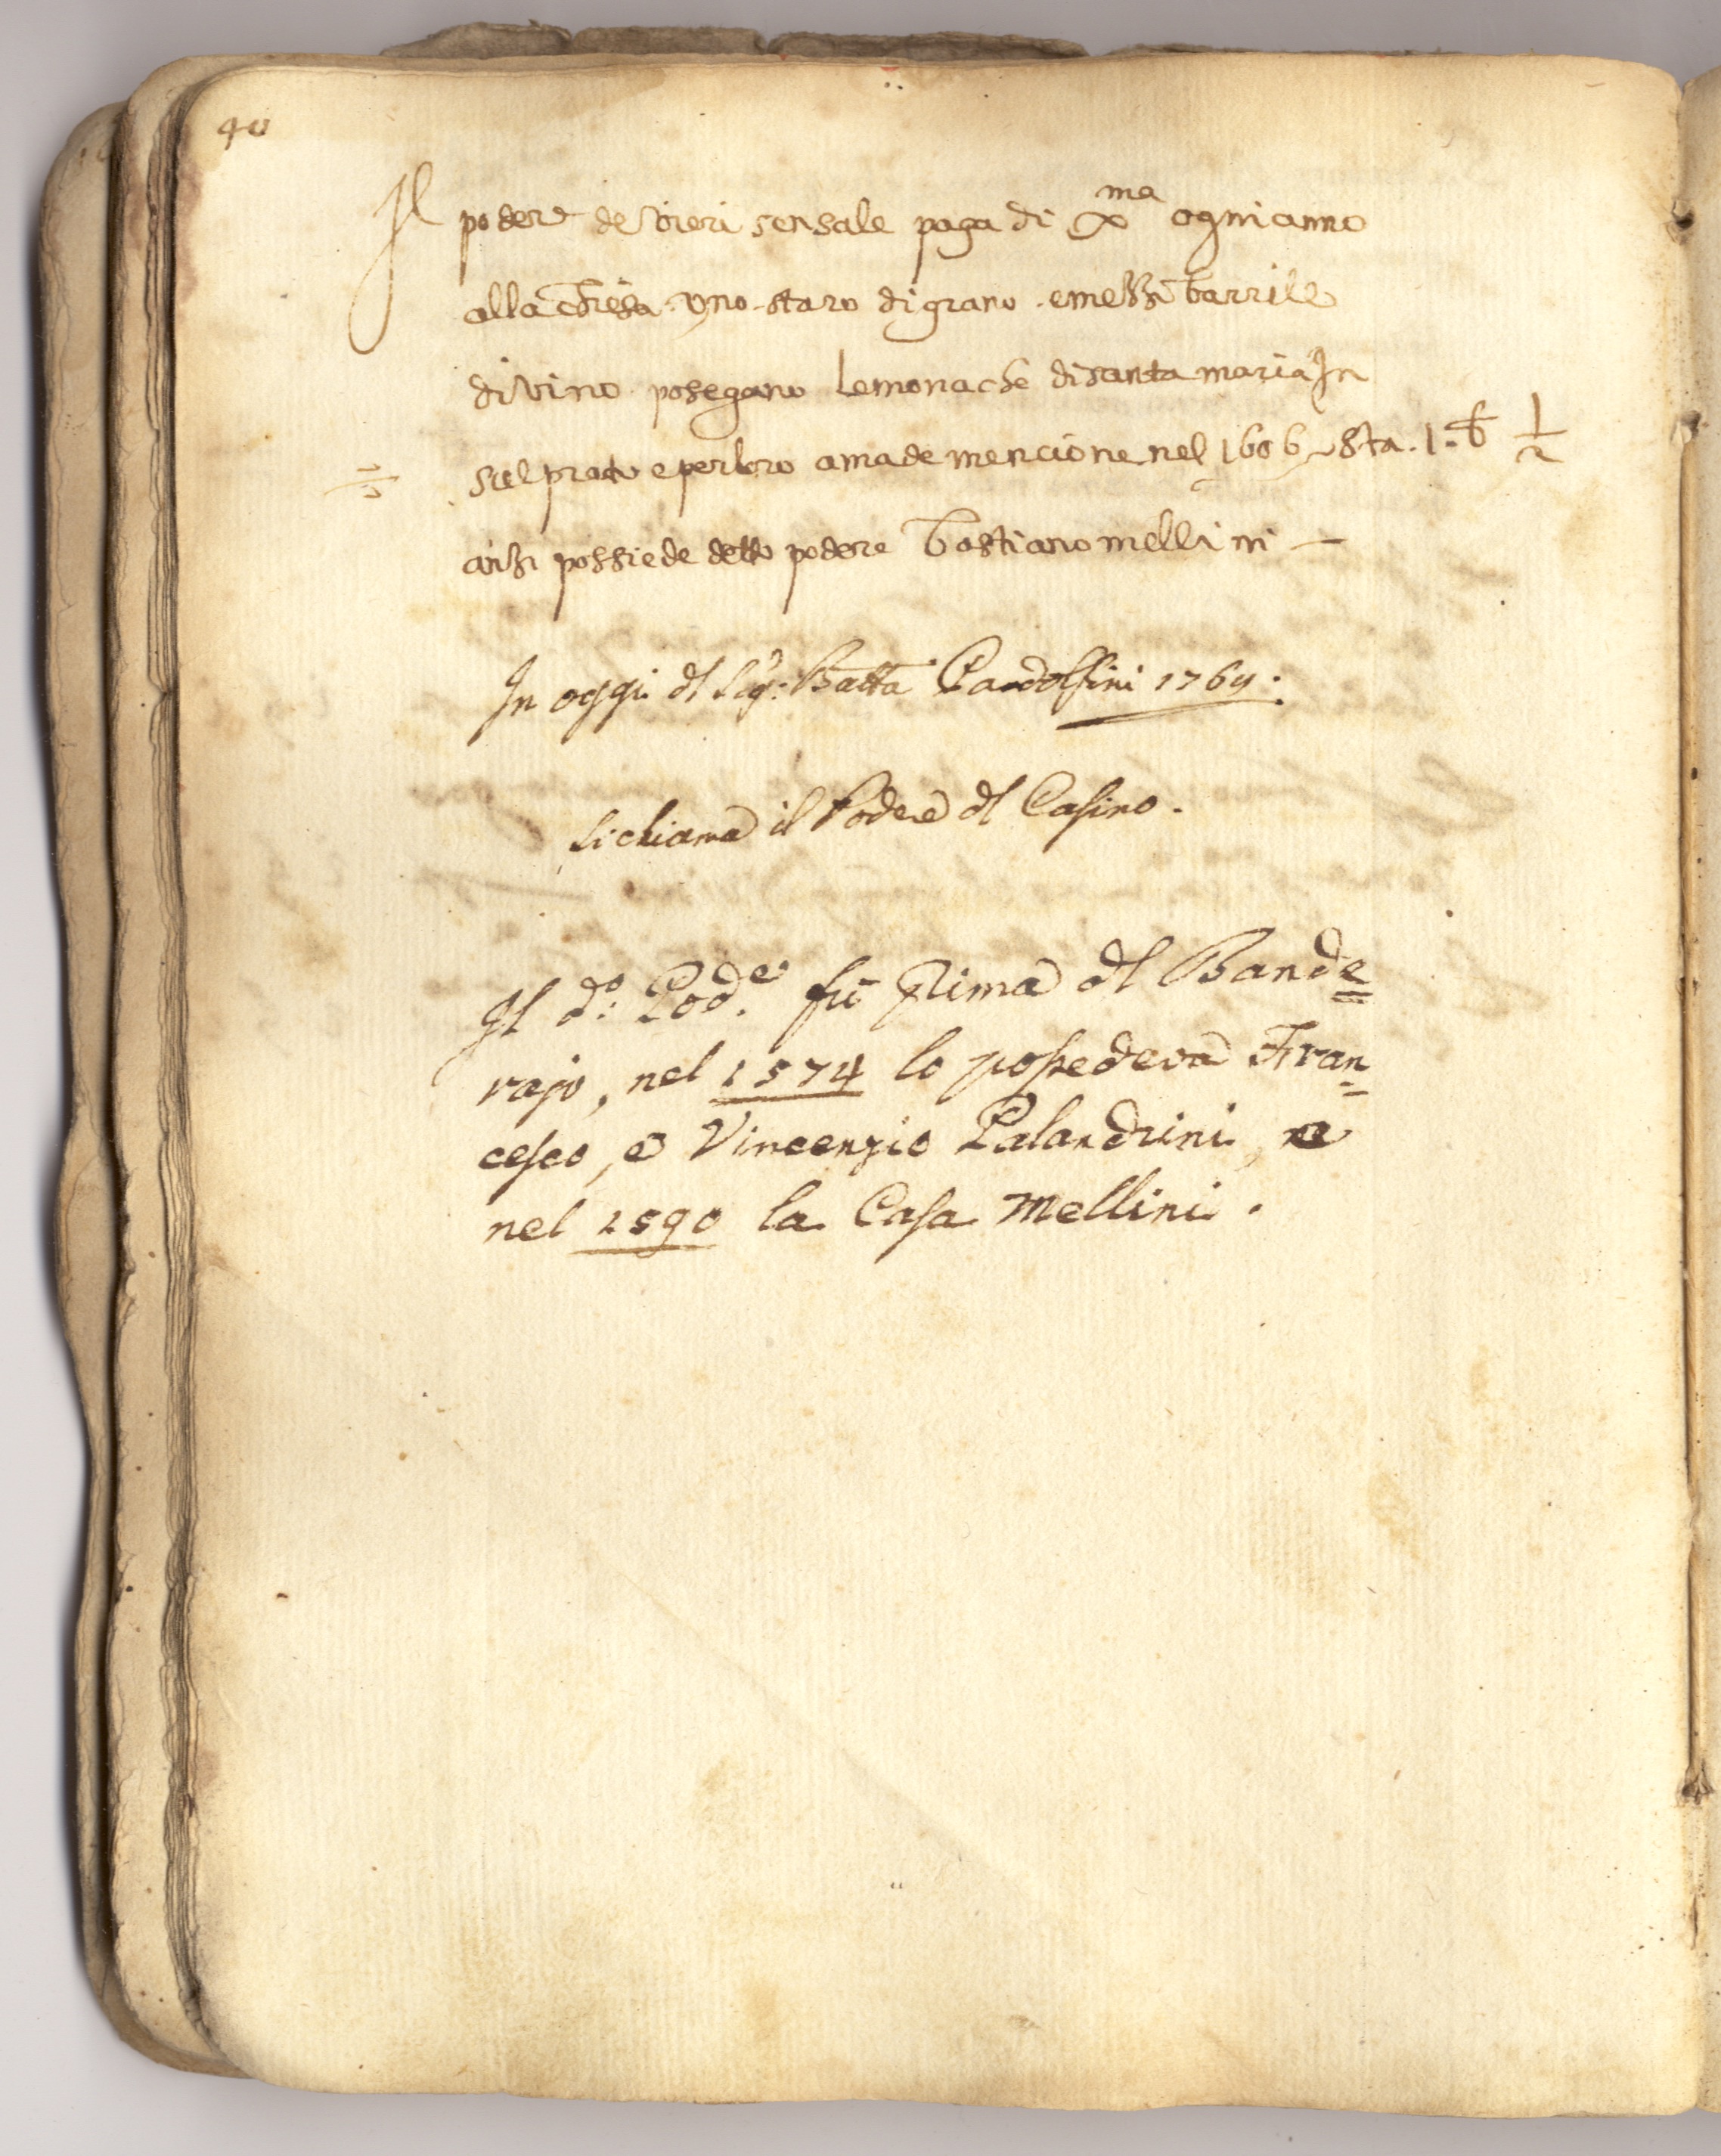 40
Il podere de Vieri sensale paga di xma ogni anno
alla chiesa uno staro di grano e mezzi barrile
di vino posegano le monache di santa maria In
sul prato e per loro amade mencione nel 1606 sta. 1. b 1/2
anzi possiede detto podere bastiano mellini —
In oggi dl Sigr: Batta Pandolfini 1769.
Si chiama il Podere dl Casino.
Il do: Pode. fu prima dl Bande=
rajo, nel 1574 lo possedeva Fran=
cesco, e Vincenzio Palandrini, e
nel 1590 la Casa Mellini.